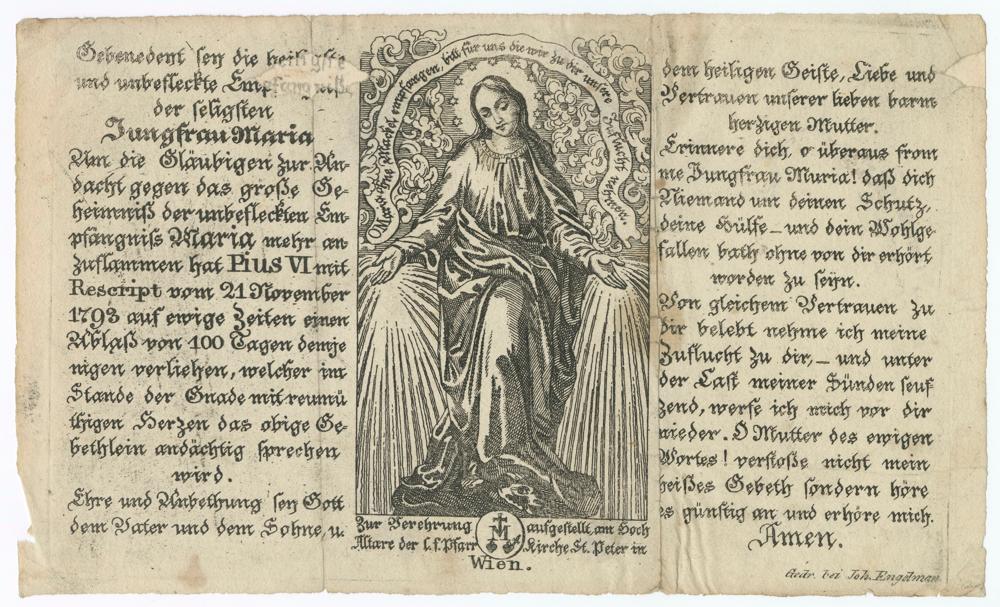 Gebenedeyt sey die heiligste
und unbefleckte Empfängniß
der seligsten
Jungfrau Maria
Um die Gläubigen zur An-
dacht gegen das große Ge-
heimniß der unbefleckten Em-
pfängniss Maria mehr an
zuflammen hat Pius VI mit
Rescript vom 21 November
1793 auf ewige Zeiten einen
Ablaß von 100 Tagen demje
nigen verliehen, welcher im
Stande der Gnade mit reumü
thigen Herzen das obige Ge-
bethlein andächtig sprechen
wird.
Ehre und Anbethung sey Gott
dem Vater und dem Sohne, u.
O Maria ohne Mackel empfangen, bitt für uns die wir zu dir unsere Zuflucht nehmen.
Zur Verehrung aufgestellt am Hoch
Altare der l. f. Pfarr Kirche St. Peter in
Wien.
M
dem heiligen Geiste, Liebe und
Vertrauen unserer lieben barm
herzigen Mutter.
Erinnere dich, o überaus from
me Jungfrau Maria! daß dich
Niemand um deinen Schutz,
deine Hülfe – und dein Wohlge-
fallen bath ohne von dir erhört
worden zu seyn.
Von gleichem Vertrauen zu
dir belebt nehme ich meine
Zuflucht zu dir, – und unter
der Last meiner Sünden seuf
zend, werfe ich mich vor dir
nieder. O Mutter des ewigen
Wortes! verstoße nicht mein
heißes Gebeth sondern höre
es günstig an und erhöre mich.
Amen.
Gedr. bei Joh. Engelman